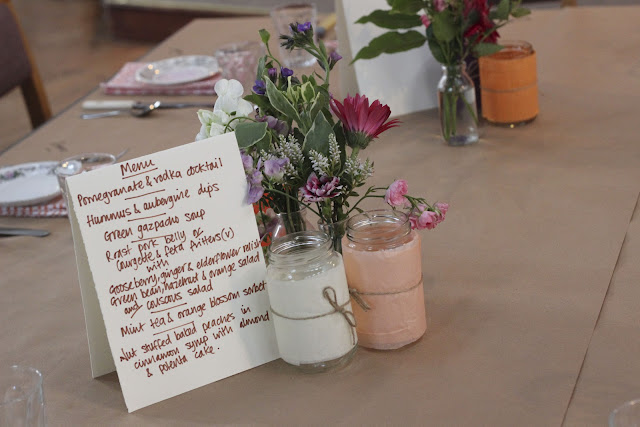 Menu
Pomegranate & vodka cocktail
Hummus & aubergine dips
Green gazpacho soup
Roast pork belly or
courgette & feta fritters (v)
with
Gooseberry, ginger & elderflower relish
Green bean, hazelnut & orange salad
and couscous salad
Mint tea & orange blossom sorbet
Nut stuffed baked peaches in
cinnamon syrup with almond
& polenta cake.